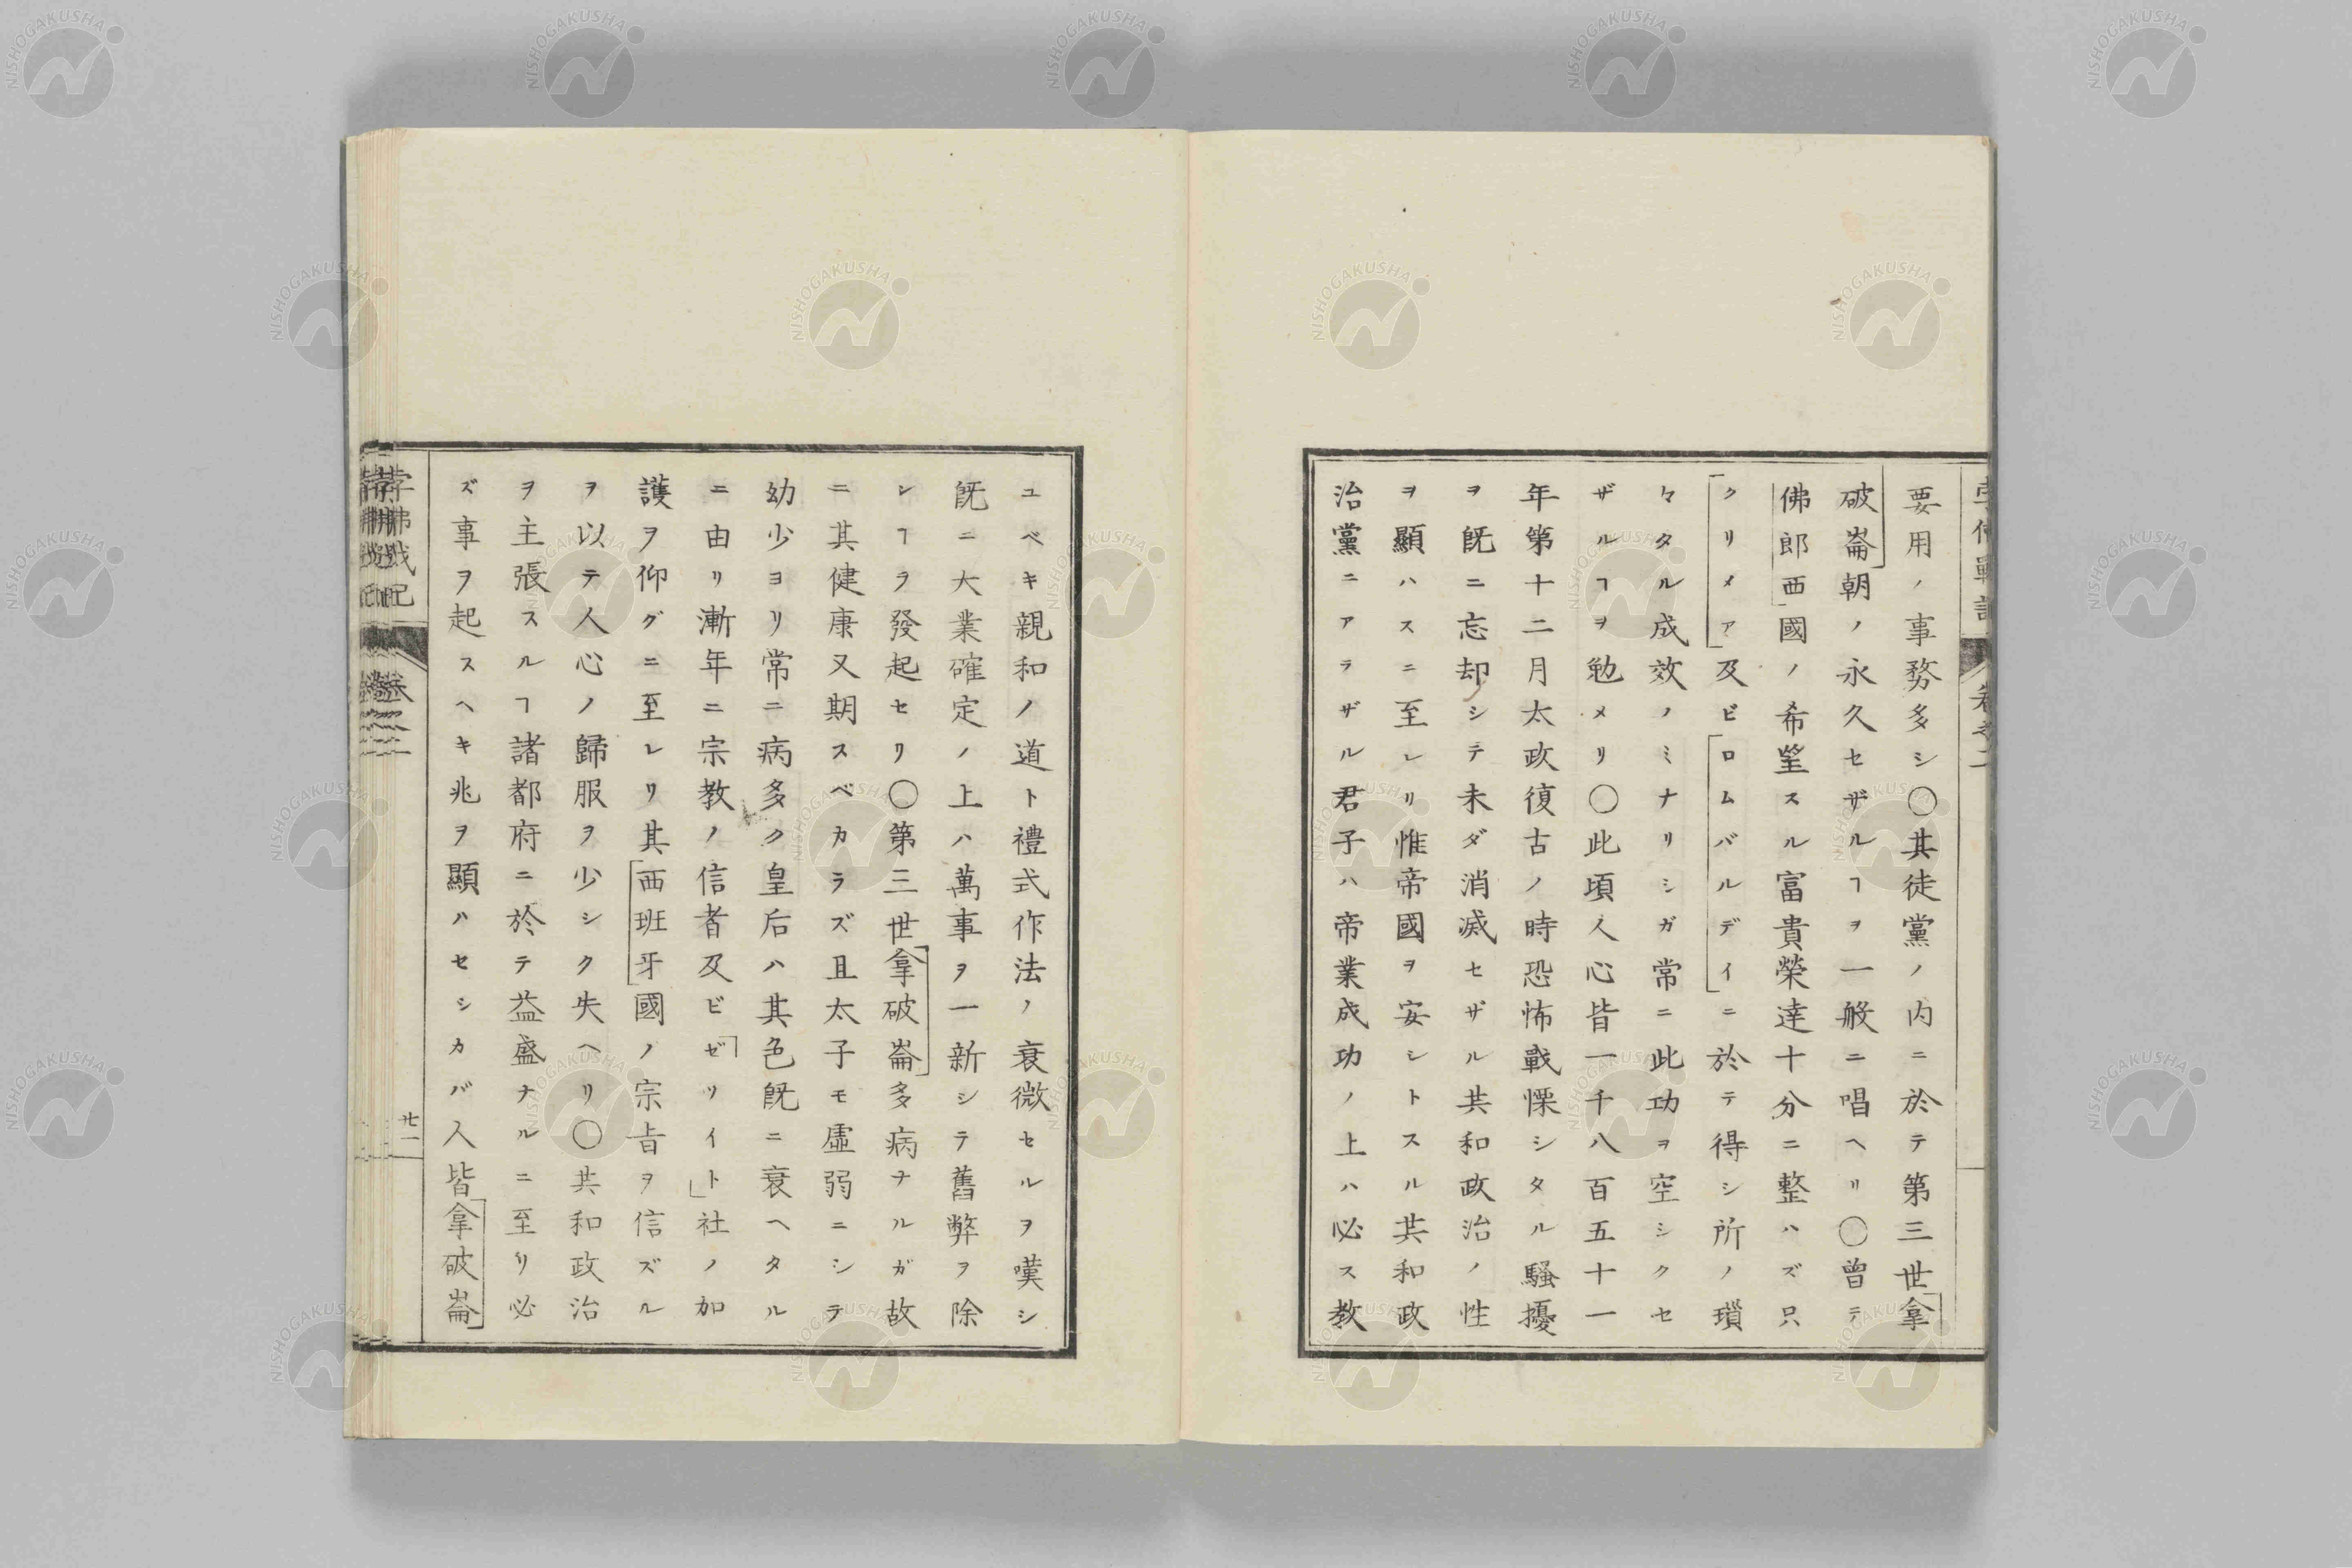 要用ノ事務多シ〇其徒黨ノ内ニ於テ第三世拿
破崙朝ノ永久セザルヿヲ一般ニ唱ヘリ〇曾テ
佛郎西國ノ希望スル富貴榮達十分ニ整ハズ只
クリメア及ビロムバルデイニ於テ得シ所ノ瑣
々タル成效ノミナリシガ常ニ此功ヲ空シクセ
ザルヿヲ勉メリ〇此頃人心皆一千八百五十一
年第十二月太政復古ノ時恐怖戰慄シタル騷擾
ヲ既ニ忘却シテ未ダ消滅セザル共和政治ノ性
ヲ顯ハスニ至レリ惟帝國ヲ安シトスル共和政
治黨ニアラザル君子ハ帝業成功ノ上ハ必ス教
ユベキ親和ノ道ト禮式作法ノ衰微セルヲ嘆シ
既ニ大業確定ノ上ハ萬事ヲ一新シテ舊弊ヲ除
シヿラ發起セリ〇第三世拿破崙多病ナルガ故
ニ其健康又期スベカラズ且太子モ虛弱ニシテ
幼少ヨリ常ニ病多ク皇后ハ其色既ニ衰ヘタル
ニ由リ漸年ニ宗教ノ信者及ビ「ゼリイト」社ノ加
護ヲ仰グニ至レリ其西班牙國ノ宗旨ヲ信ズル
ヲ以テ人心ノ歸服ヲ少シク失ヘリ〇共和政治
ヲ主張スルヿ諸都府ニ於テ益盛ナルニ至リ必
ズ事ヲ起スヘキ兆ヲ顯ハセシカバ人皆拿破崙
廿一
NISHOGAKUSHA